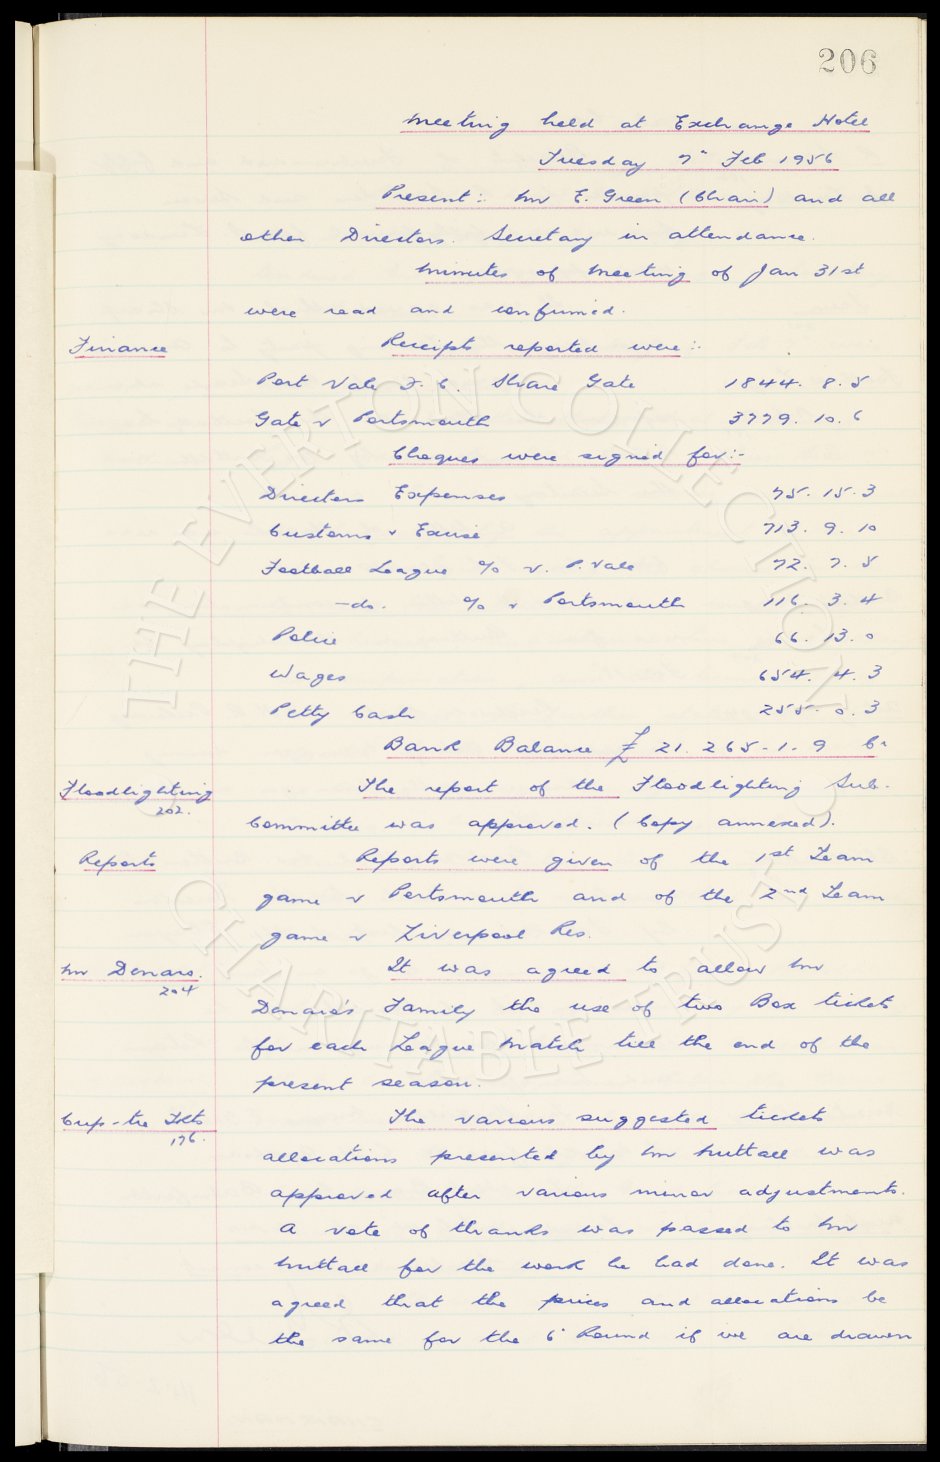 206
Meeting held at Exchange Hotel
Tuesday 7" Feb 1956
Present:- Mr E. Green (Chair) and all
other Directors. Secretary in attendance.
Minutes of Meeting of Jan 31st
were read and confirmed.
Finance Receipts reported were:-
Port Vale F.C. Share Gate 1844. 8. 5
Gate v Portsmouth 3779. 10. 6
Cheques were signed for:-
Directors Expenses 75. 15. 3
Customs & Excise 713. 9. 10
Football League % v. P. Vale 72. 7. 5
-do. % v Portsmouth 116. 3. 4
Police 66. 13. 0
Wages 654. 4. 3
Petty Cash 255. 0. 3
Bank Balance £ 21. 265-1-9 Cr
Floodlighting The report of the Floodlighting Sub-
202.
Committee was approved. (Copy annexed).
Reports Reports were given of the 1st Team
game v Portsmouth and of the 2nd Team
game v Liverpool Res.
Mr Denaro. It was agreed to allow Mr
204
Denaro's Family the use of two Box tickets
for each League Match till the end of the
present season.
Cup-tie Tkts The various suggested tickets
176.
allocations presented by Mr Nuttall was
approved after various minor adjustments.
A vote of thanks was passed to Mr
Nuttall for the work he had done. It was
agreed that the prices and allocations be
the same for the 6" Round if we are drawn
THE EVERTON COLLECTION
CHARITABLE TRUST